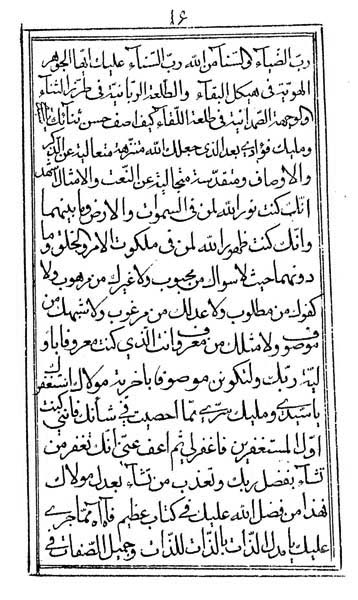 ١٦
ربّ الضّياء والسّناء من الله ربّ السّناء عليك ايّها الجوهر
الهويّة فى هيكل البقاء والطلعة الربانية فى طرز الثناء
والوجهة الصمدانية فى طلعة اللقاء كيف اصف حسن ثنائك
ومليك فؤادى بعد الذى جعلك الله متنزهة متعالية عن الذكر
والاوصاف ومتقدسة متجالية عن النعت والامثال
انك كنت نور الله لمن فى السموات والارض وما بينهما
وانك كنت ظهور الله لمن فى ملكوت الامر والخلق وما
دونهما حيث لا سواك من محبوب ولا غيرك من مرهوب ولا
كفوك من مطلوب ولا عدلك من مرغوب ولا شبهك من
موصوف ولا مثلك من معروف وانت الذى كنت معروفا باو
ليّة ربّك ولتكونن موصوفا باخرية مولاك استغفرك
يا سيدى ومليك سرّى بما احصيت فى شأنك فاننى كنت
اوّل المستغفرين فاغفر لى ثم اعف عنّى انك تغفر من
تشاء بفضل ربك وتعذب من تشاء بعدل مولاك
فهذا من فضل الله عليك فى كتاب عظيم فآه آه مما جرى
عليك يا مدل الذات بالذات للذات وجميل الصفات فى